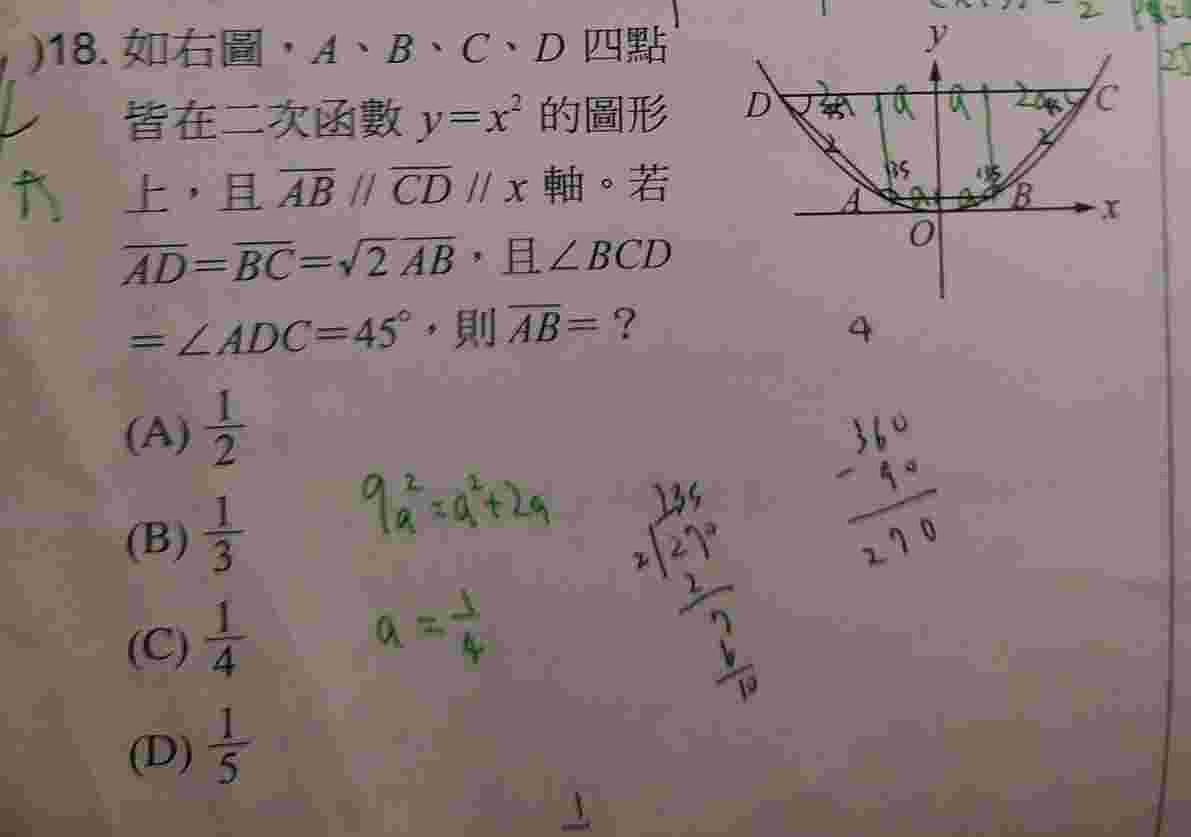 )18. 如右圖，A、B、C、D 四點
皆在二次函數 y=x² 的圖形
上，且 AB // CD // x 軸。若
AD=BC=√2 AB，且∠BCD
=∠ADC=45°，則 AB=？
(A) 1/2
(B) 1/3
(C) 1/4
(D) 1/5
y
D
a
a
C
A
B
x
O
4
9a²=a²+2a
a=1/4
135
2√270
2
7
6
10
360
- 90
270
1